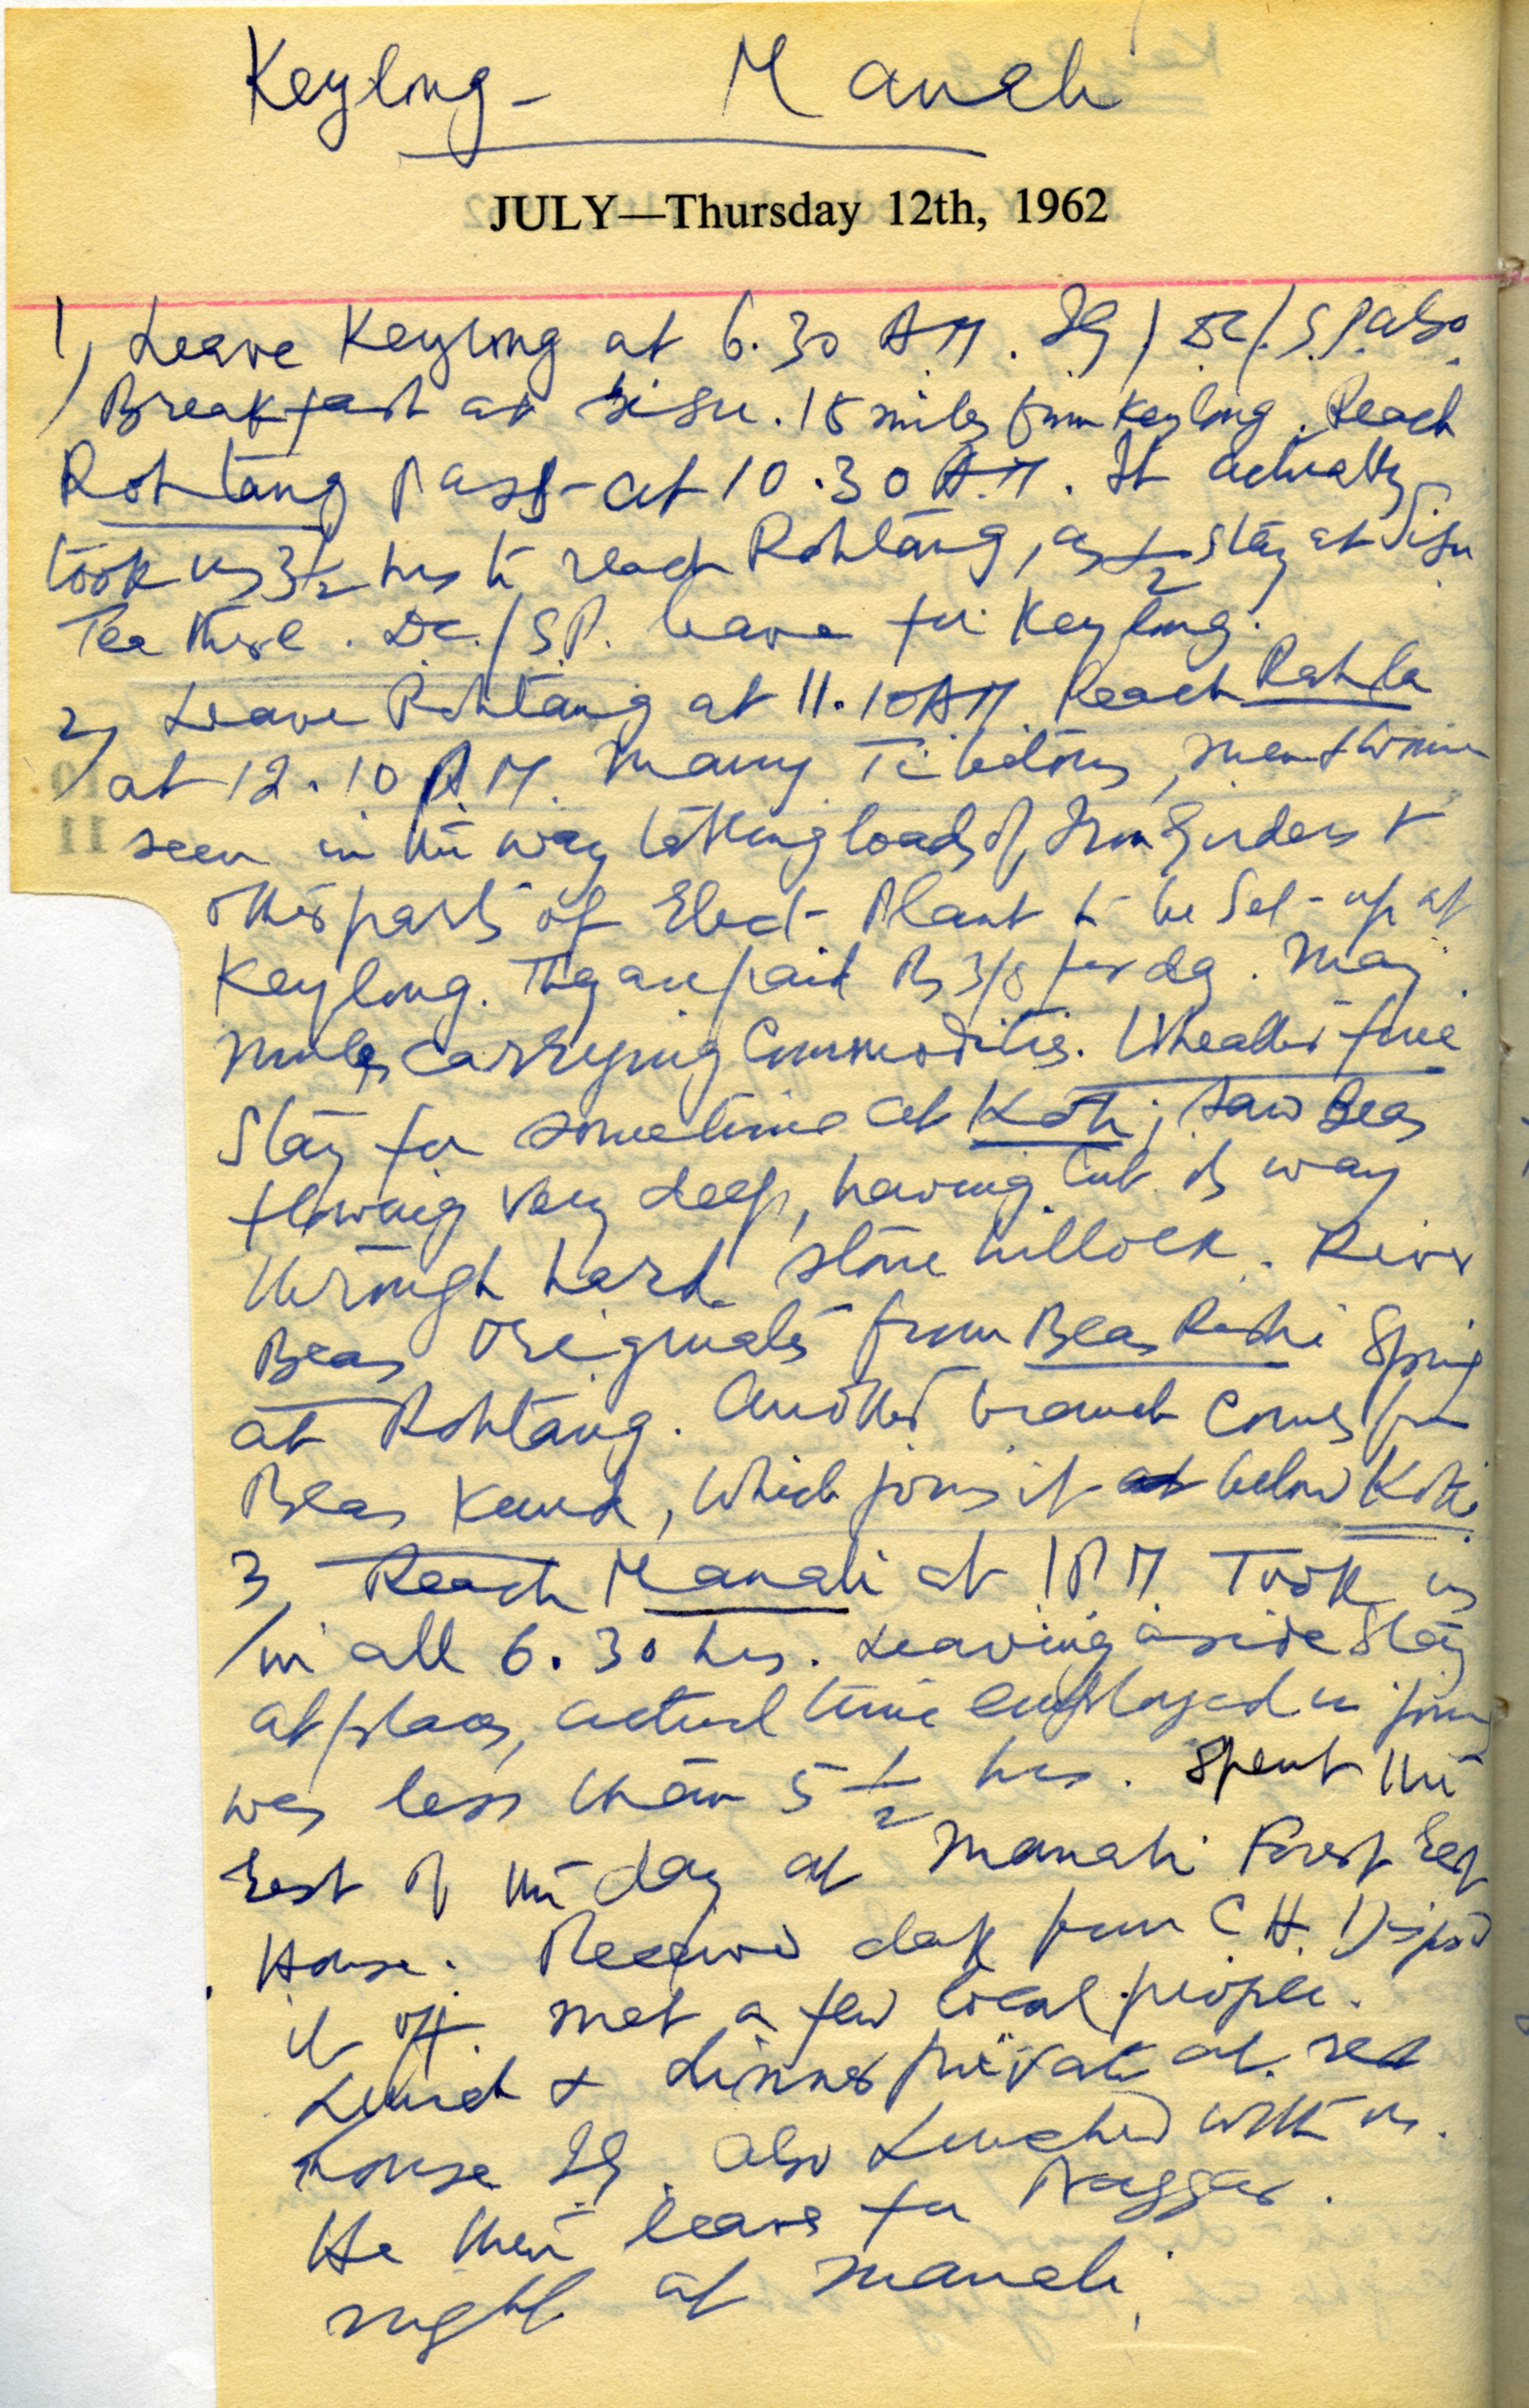 Keylong - Manali
JULY—Thursday 12th, 1962
1) Leave Keylong at 6.30 AM. IG / DC / S.P. also.
Breakfast at Sisu. 18 miles from Keylong. Reach
Rohtang Pass - at 10.30 A.M. It actually
took us 3½ hrs to reach Rohtang, as ½ stay at Sisu
Tea there. DC. / S.P. leave for Keylong.
2) Leave Rohtang at 11.10 AM. Reach Rahla
at 12.10 PM. Many Tibetans, men & women
seen in the way taking loads of Iron Girders &
other parts of Elect- Plant to be Set-up at
Keylong. They are paid Rs 3/8 per day. Many
mules carrying Commodities. Weather fine
Stay for sometime at Kothi; saw Beas
flowing very deep, having cut its way
through hard stone hillock. River
Beas Originates from Beas Rishi Spring
at Rohtang. Another branch comes from
Beas Kund, which joins it at below Kothi.
3) Reach Manali at 1 PM. Took us
in all 6.30 hrs. Leaving aside Stay
at places, actual time employed in journey
was less than 5½ hrs. Spent the
rest of the day at Manali Forest Rest
House. Received dak from CH. Disposed
it off. Met a few local people.
Lunch & dinner private at rest
house IG. also Lunched with us.
He then leave for Naggar.
night at Manali.